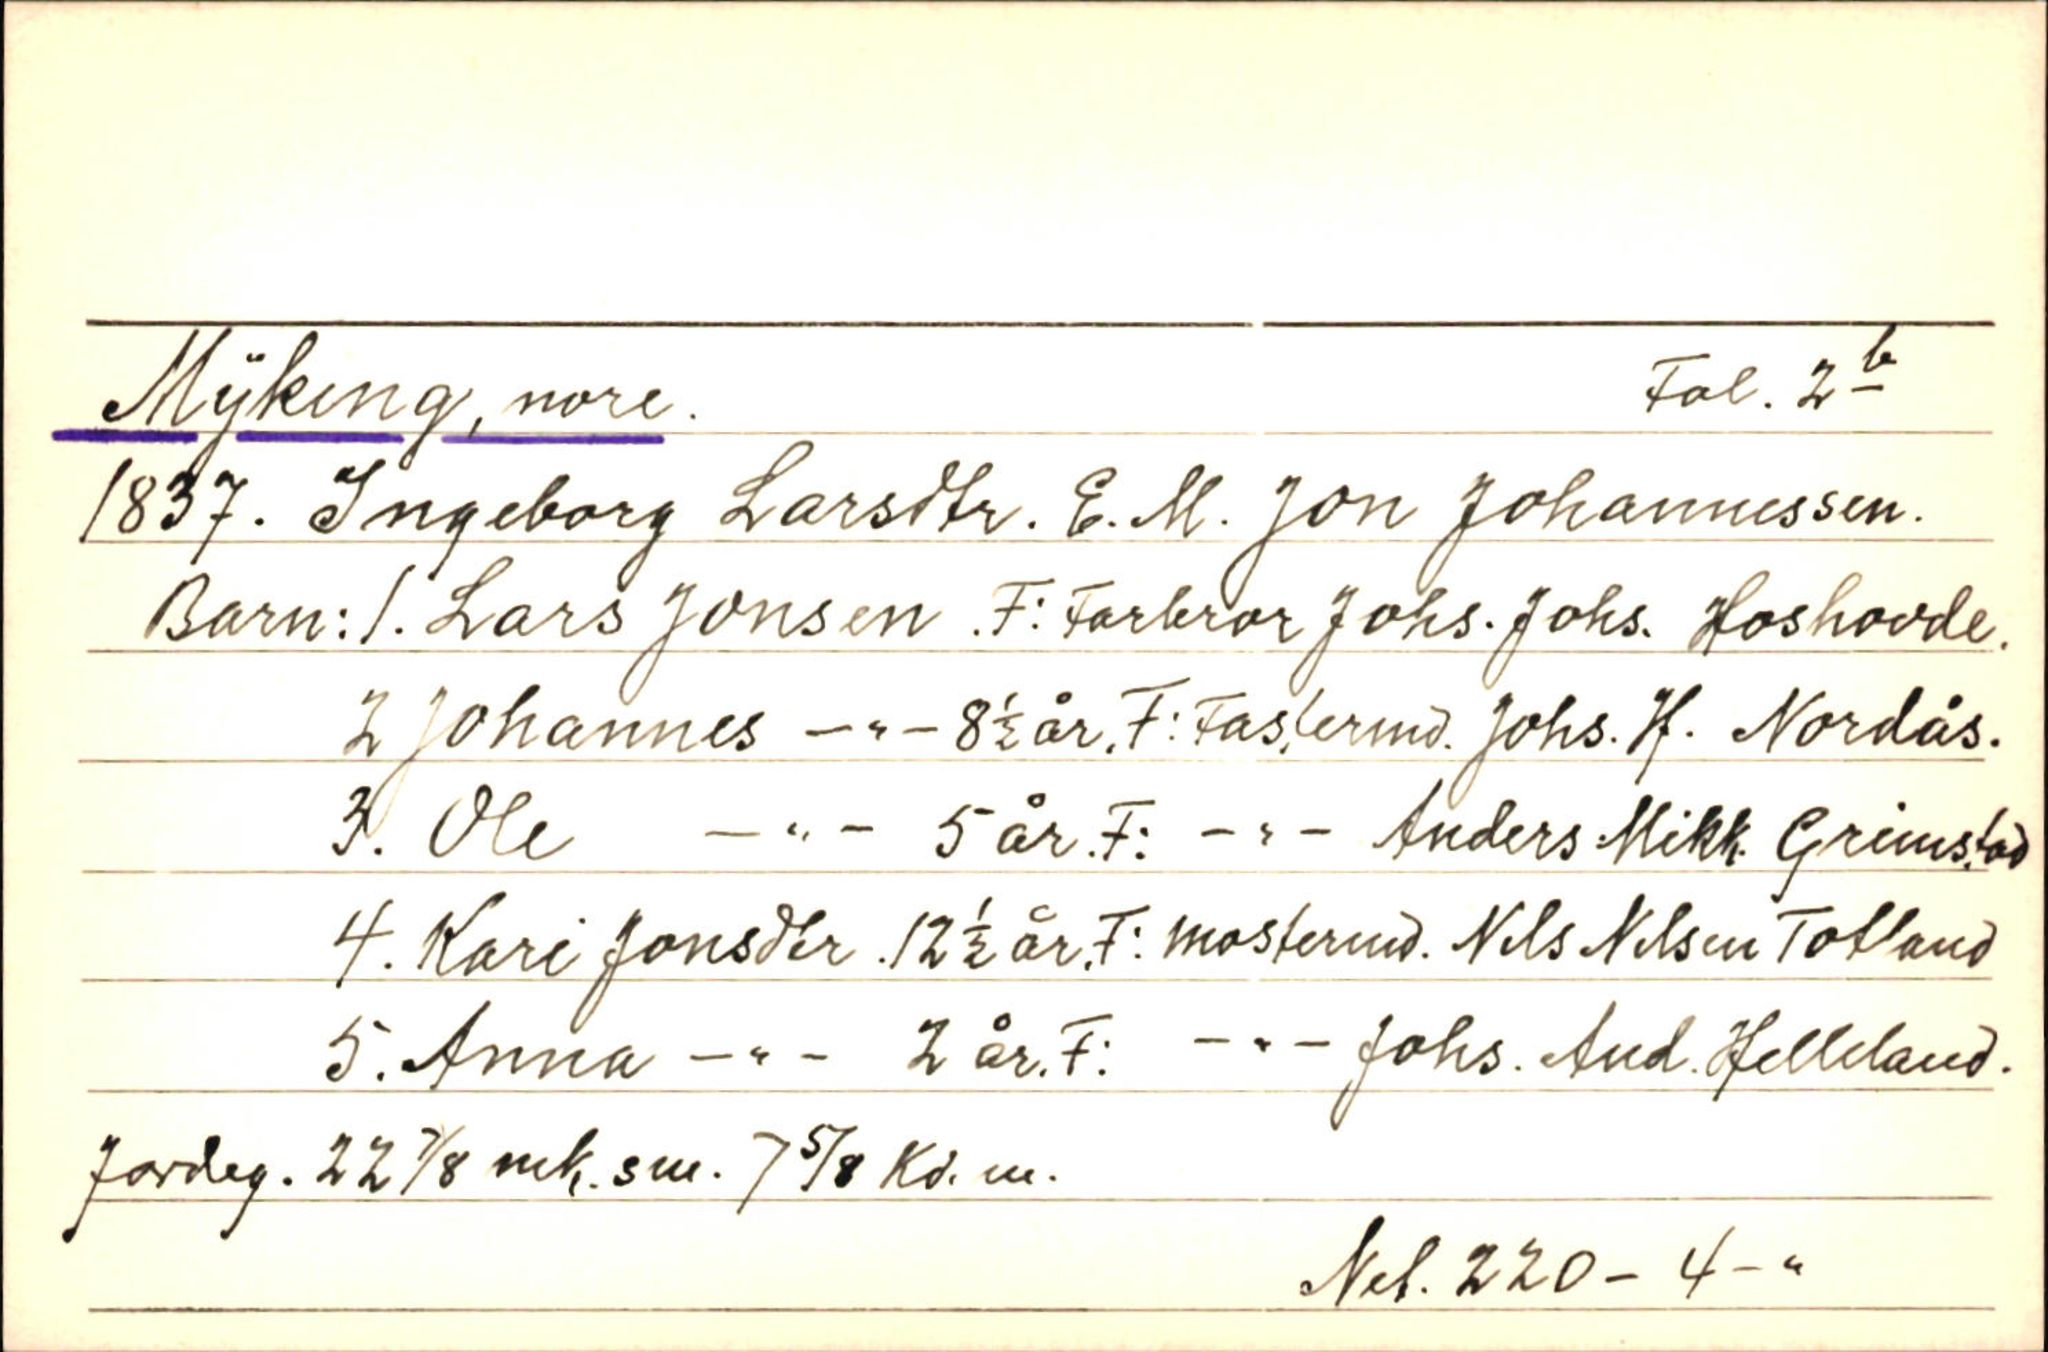 Mÿking, nore. Fol. 2b
1837. Ingeborg Larsdtr. E. M. Jon Johannessen.
Barn: 1. Lars Jonsen. F: Farbror Johs. Johs. Hoshovde.
2 Johannes -"- 8½ år. F: Fastermd. Johs. H. Nordås.
3. Ole -"- 5 år. F: -"- Anders Mikk. Grimstad
4. Kari Jonsdtr. 12½ år. F: mostermd. Nils Nilsen Totland
5. Anna -"- 2 år. F: -"- Johs. And. Helleland.
Jordeg. 22 7/8 mk. sm. 7 5/8 Kd. m.
Net. 220 - 4 - "